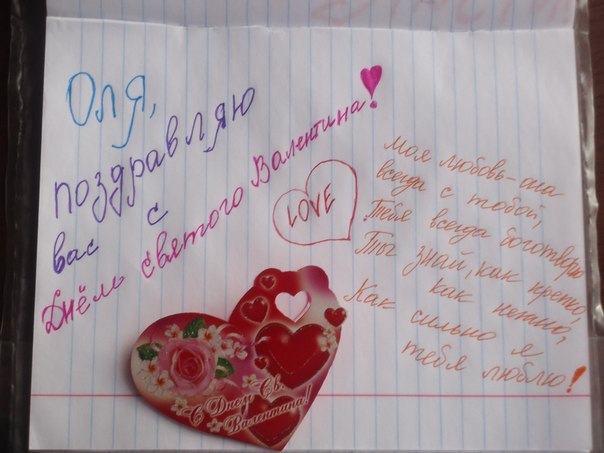 Оля,
поздравляю
вас с
Днём святого Валентина!
LOVE
Моя любовь-она
всегда с тобой,
Тебя всегда боготворю
Ты знай, как крепко,
как нежно,
Как сильно я
тебя люблю!
С Днем Св.
Валентина!